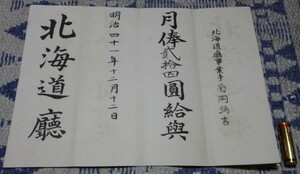 北海道廳事業手 菊岡鴻吉
月俸貳拾四圓給與
明治四十一年十二月十二日
北海道廳